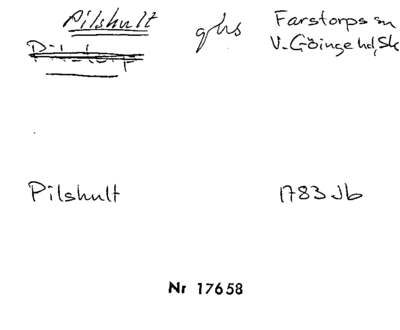 Pilshult ghs Farstorps sn
V. Göinge hd, Sk
Pilshult 1783 Jb
Nr 17658